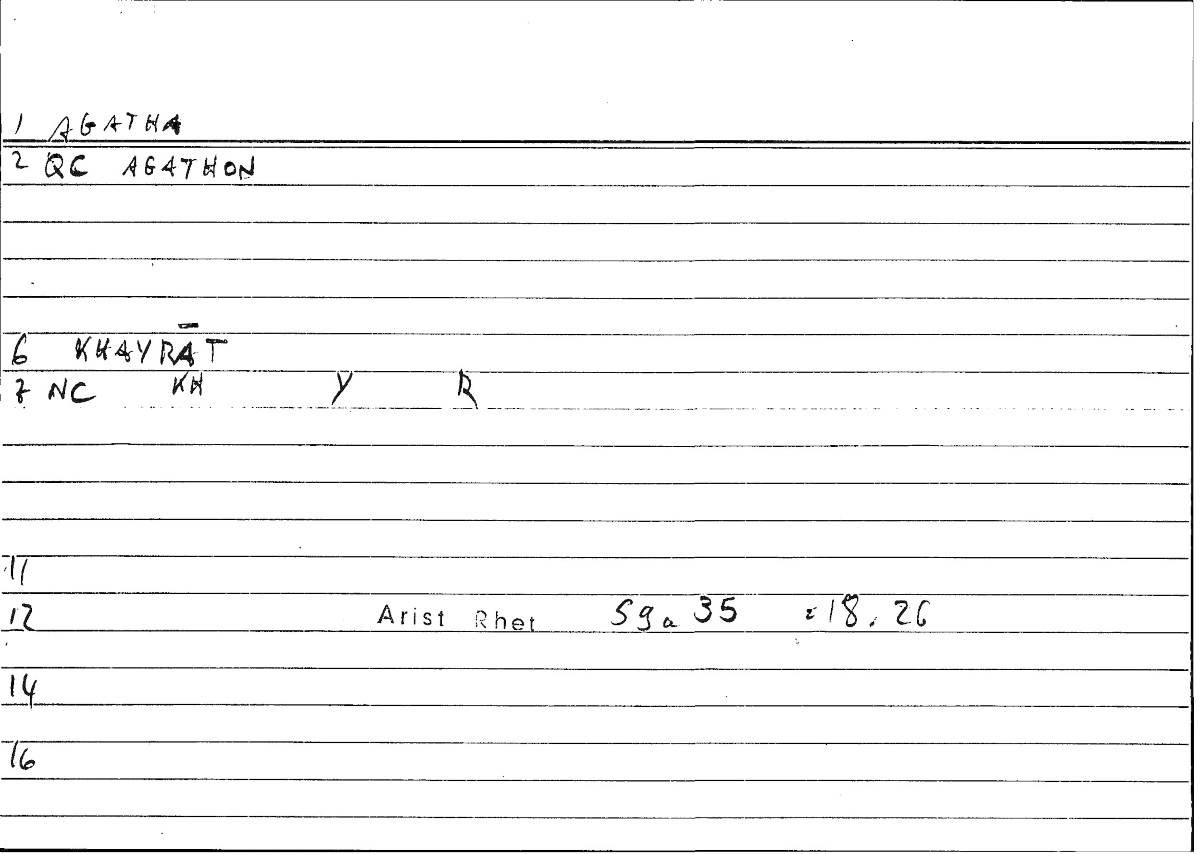 1 AGATHA
2 QC AGATHON
6 KHAYRĀT
7 NC KH Y R
11
12 Arist Rhet 59a35 :18.26
14
16